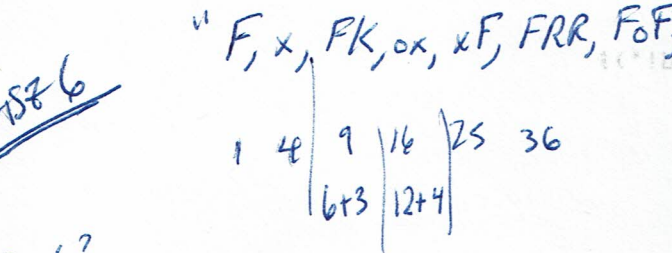 " F, x, FK, ox, xF, FRR, FoF,
1 4 9 16 25 36
6+3 12+4
?